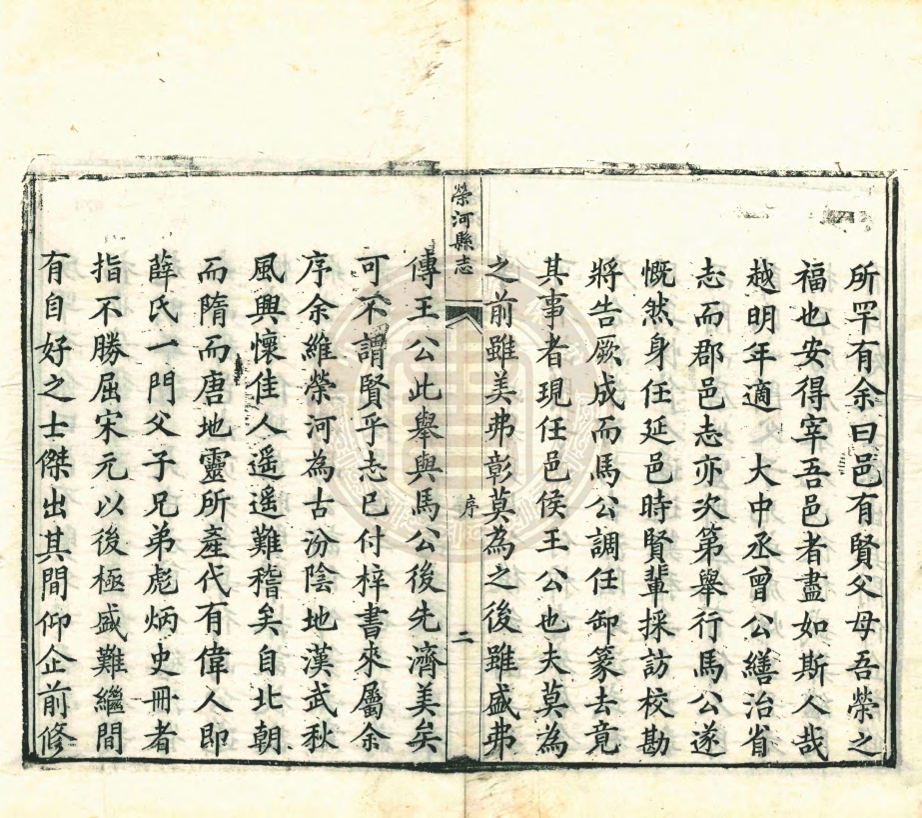 所罕有余曰邑有賢父母吾榮之
福也安得宰吾邑者盡如斯人哉
越明年適　大中丞曾公繕治省
志而郡邑志亦次第舉行馬公遂
慨然身任延邑時賢輩採訪校勘
將告厥成而馬公調任卸篆去竟
其事者現任邑侯王公也夫莫為
之前雖美弗彰莫為之後雖盛弗
榮河縣志
序
二
傳王公此舉與馬公後先濟美矣
可不謂賢乎志已付梓書來屬余
序余維榮河為古汾陰地漢武秋
風興懷佳人遥遥難稽矣自北朝
而隋而唐地靈所產代有偉人即
薛氏一門父子兄弟彪炳史冊者
指不勝屈宋元以後極盛難繼間
有自好之士傑出其間仰企前修